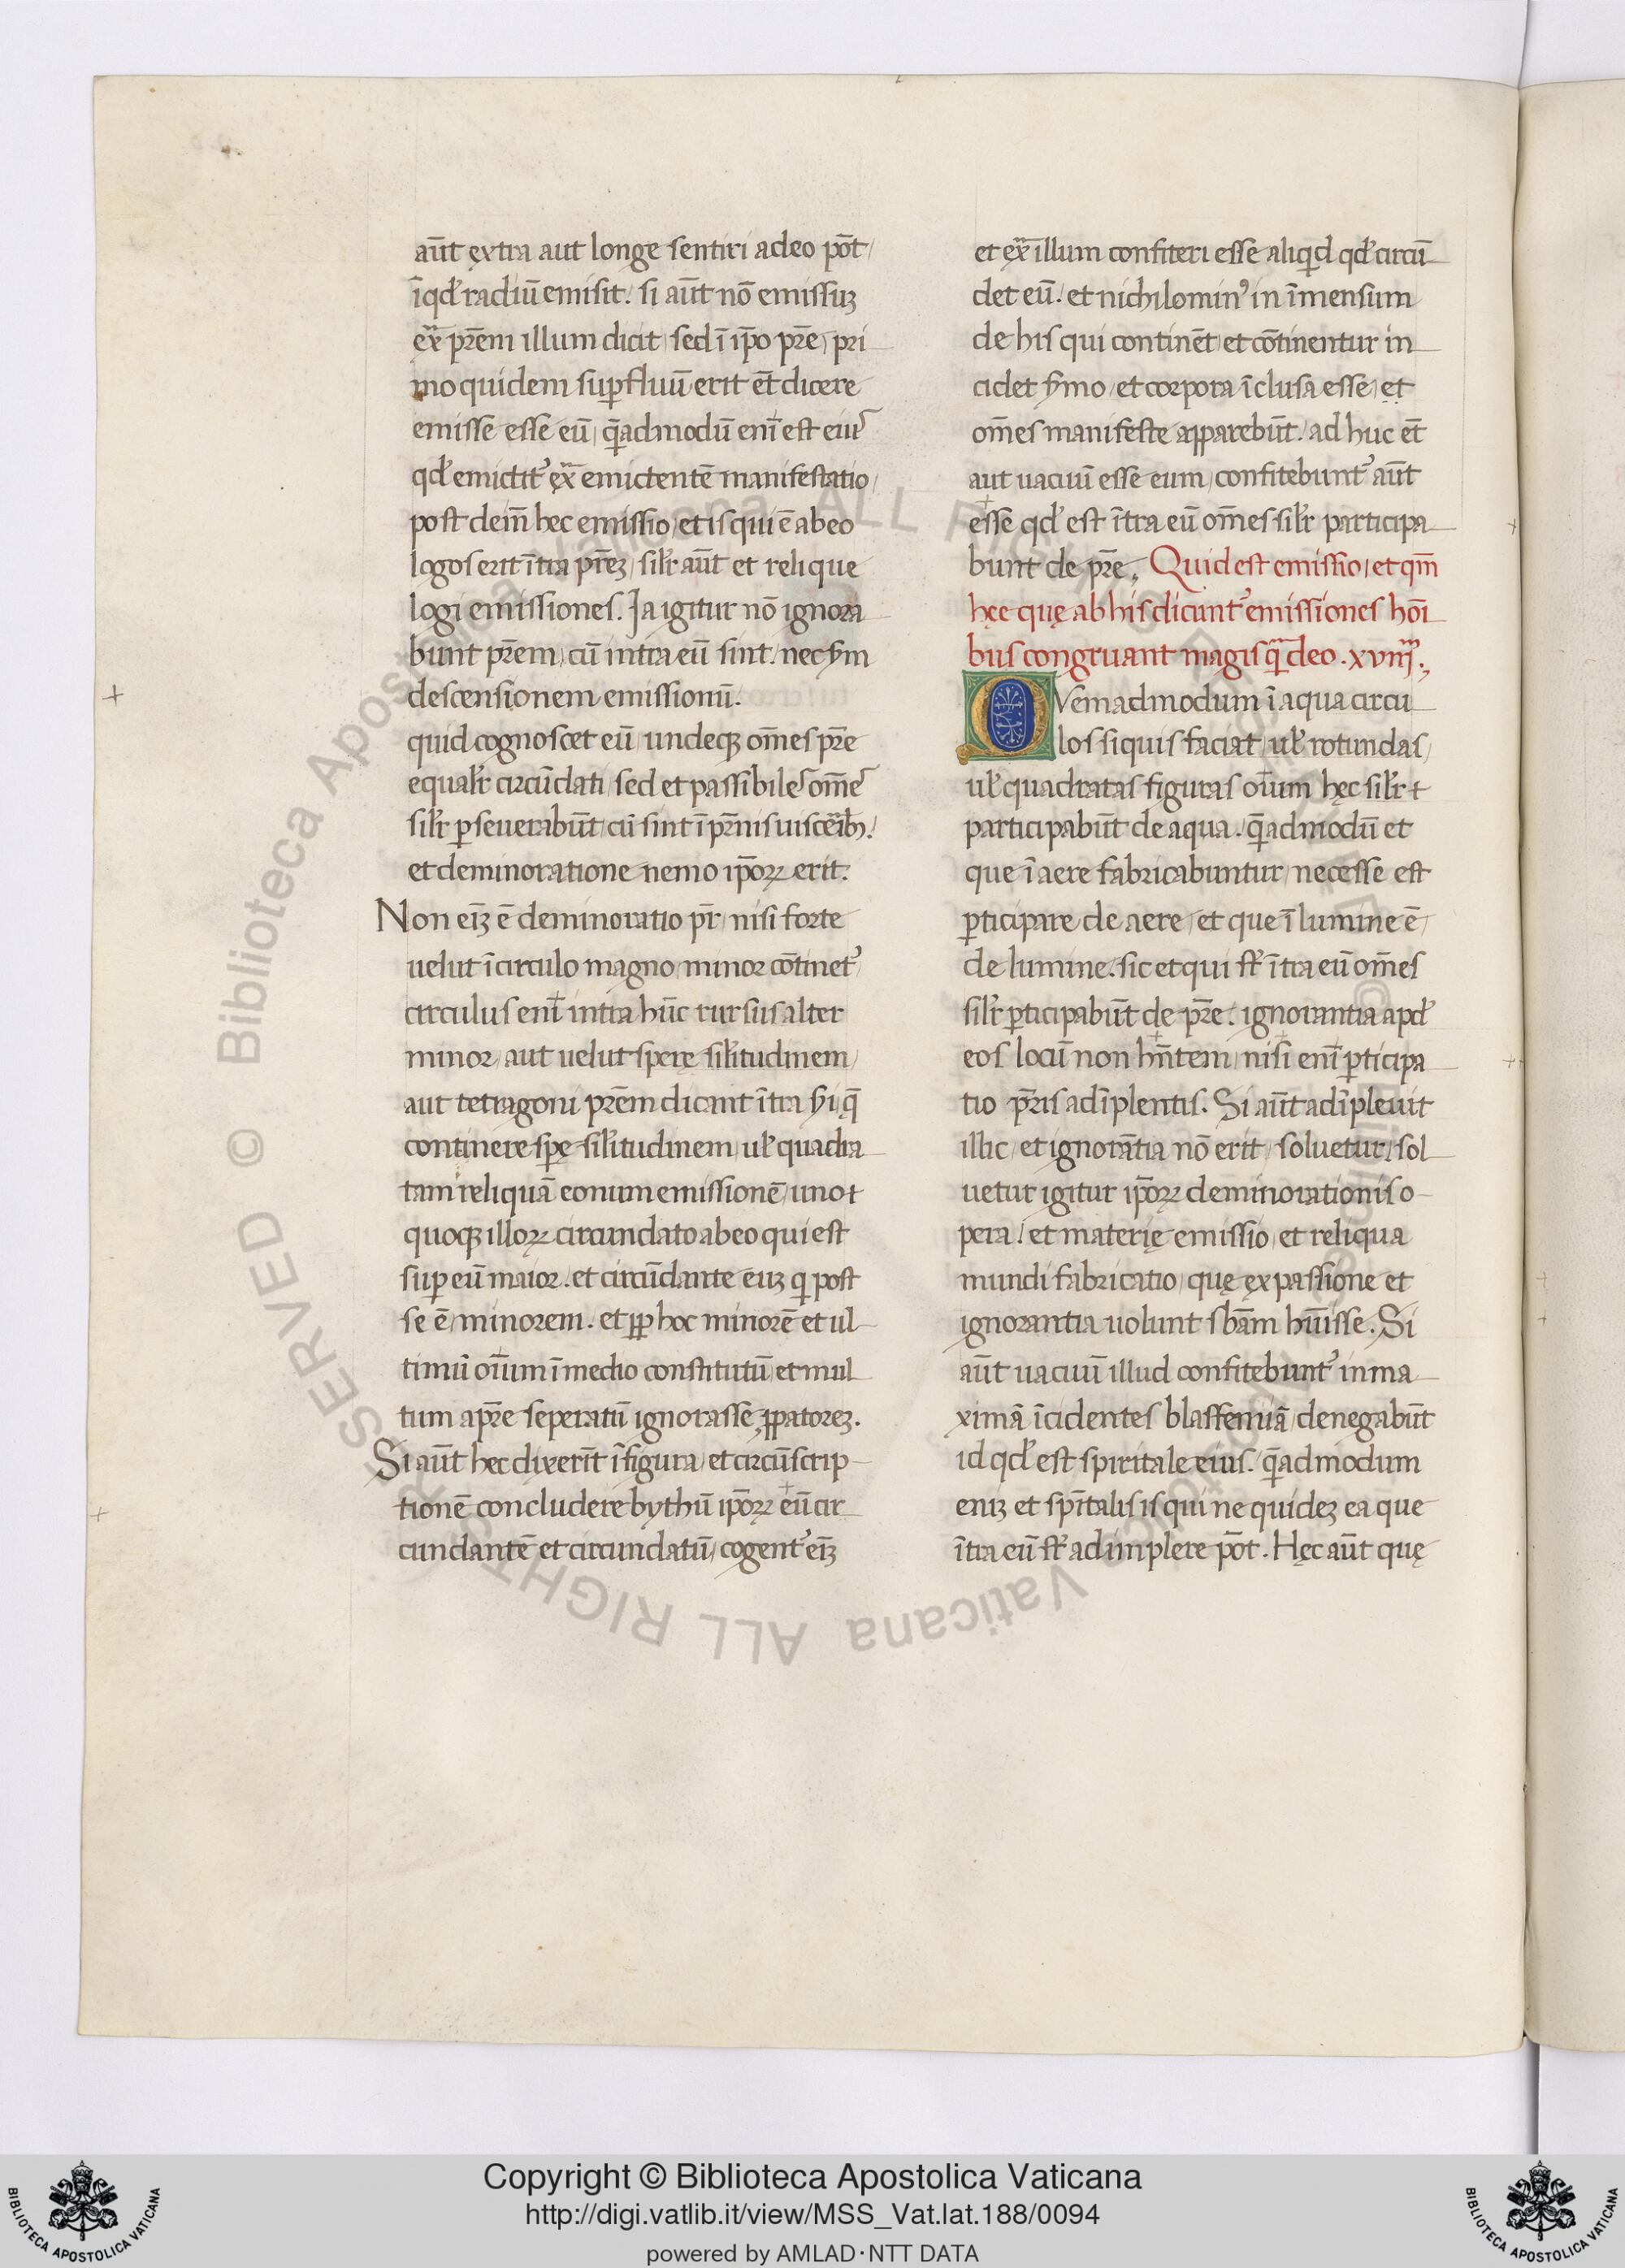 aūt ęxtra aut longe sentiri adeo pōt
īqđ radiū emisit. si aūt nō emissuʒ
ex̄ prēm illum dicit sed ī ip̄o prē pri
mo quidem suꝑfluū erit ēt dicere
emisse esse eū q̄admodū enī est eiuſ
qđ emictitˀ ęx̄ emictentē manifestatio
post dem̄ hec emissio et is qui ē ab eo
logos erit ītra prēʒ silr̄ aūt et relique
logi emissiones. Ja igitur nō ignora
bunt prēm cū intra eū sint. nec ẜm
descensionem emissionū.
quid cognoscet eū undeqꝫ om̄es prē
equalr̄ circūdati sed et passibileſ om̄eſ
silr̄ ꝑseuerabūt cū sint ī pr̄nis uisceribꝫ.
et deminoratione nemo ip̄oꝝ erit.
Non eīʒ ē deminoratio pr̄ nisi forte
uelut ī circulo magno minor cōtinetˀ
circulus enī intra hūc rursus alter
minor aut uelut sperę silitudinem
aut tetragoni prēm dicant ītra ẜi q̄
continere spę silitudinem ul̄ quadra
tam reliquā eonum emissionē uno+
quoqꝫ illoꝝ circundato ab eo qui est
suꝑ eū maior. et circūdante euʒ q̄ post
se ē minorem. et ꝓꝑ hoc minorē et ul
timū oīum ī medio constitutū et mul
tum a prē seperatū ignorasse ꝓpatoreʒ.
Si aūt hec dixerīt ī figura et circūscrip
tionē concludere bythū ip̄oꝝ eū cir
cundantē et circundatū cogentˀ eīʒ
et ęx̄ illum confiteri esse aliqd qđ circū
det eū. et nichilominˀ in īmensum
de his qui continēt et cōtinentur in
cidet ẜmo et corpora īclusa esse et
om̄es manifeste apparebūt. ad huc ēt
aut uacuū esse eum confitebuntˀ aūt
esse qđ est ītra eū om̄es silr̄ participa
bunt de prē. Quid est emissio et qm̄
hęc quę ab his dicuntˀ emissiones hoī
bus congruant magis q̄ deo. xviiij.
QVemadmodum ī aqua circu
los si quis faciat ul̄ rotundas
ul̄ quadratas figuras oīum hęc silr̄ +
participabūt de aqua. q̄admodū et
que ī aere fabricabuntur necesse est
ꝑticipare de aere et que ī lumine ē
de lumine. sic et qui st̄ ītra eū om̄es
silr̄ ꝑticipabūt de prē. ignorantia apđ
eos locū non hn̄tem nisi enī ꝑticipa
tio pr̄is adīplentis. Si aūt adīpleuit
illic et ignorātia nō erit soluetur sol
uetur igitur ip̄oꝝ deminorationis o
pera. et materię emissio et reliqua
mundi fabricatio quę ęx passione et
ignorantia uolunt sbām hūisse. Si
aūt uacuū illud confitebuntˀ in ma
ximā īcidentes blasfemiā denegabūt
id qđ est spiritale eius. q̄admodum
eniʒ et spītalis is qui ne quideʒ ea que
ītra eū st̄ adimplere pōt. Hęc aūt quę
Copyright © Biblioteca Apostolica Vaticana
http://digi.vatlib.it/view/MSS_Vat.lat.188/0094
powered by AMLAD·NTT DATA
BIBLIOTECA APOSTOLICA VATICANA
BIBLIOTECA APOSTOLICA VATICANA